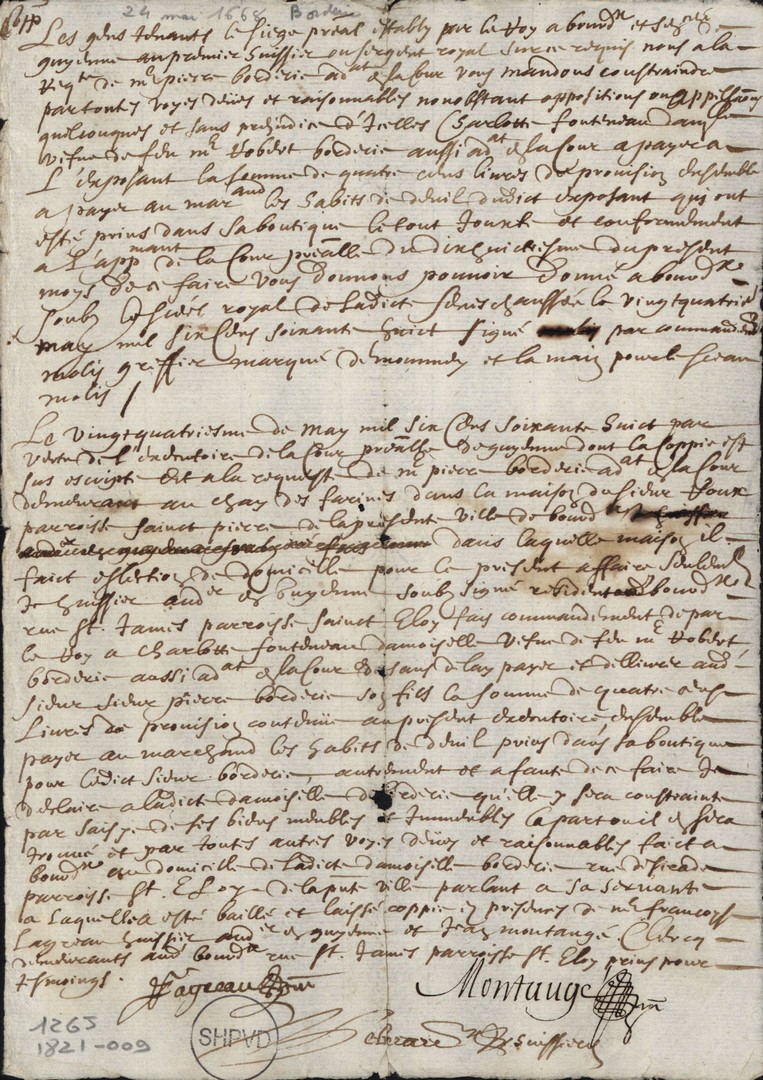 24 mai 1668 Borderie
Les gens tenants le siege preal estably par le Roy a bourdx et senee de
guyenne au premier huissier ou sergent royal sur ce requis nous a la
reqte de me pierre borderie adat en la cour vous mandons constraindre
par toutes voyes deues et raisonnables nonobstant oppositions ou appellaons
quelconques et sans prejudice d'icelles Charlotte fonteneau damlle
vefue de feu me Robert borderie aussi adat en la cour a payer a
L'exposant la somme de quatre cens livres de provision ensemble
a payer au marand les habits de deuil dudict exposant qui ont
esté prins dans sa boutique le tout Jouxte et conformement
a L'appmant de la Cour prealle du dixhuictiesme du present
moys de ce faire vous donnons pouvoir donné a bourdx
soubz le scel royal de Ladicte seneschaussée le vingtquatrie
may mil six cens soixante huict signé par commandemt
molis greffier marqué de mommey et la main pour le sceau
molis /
Le vingtquatriesme de may mil six cens soixante huict par
vertu de l'exécutoire de la Cour prealle de guyenne dont la coppie est
sus escripte et a la requeste de me pierre borderie adat en la Cour
demeurant au chay des farines dans la maison du sieur Roux
parroisse sainct pierre de la presente ville de bourdx
dans laquelle maison il
faict eslection de domicille pour le present affaire seulemt
Je huissier audier en guyenne soubz signé residant aud bourdx
rue St. James parroisse sainct Eloy fais commandement de par
le Roy a Charlotte fonteneau damoiselle vefue de feu me Robert
borderie aussi adat en la cour de sans delay payer et dellivrer aud
sieur sieur pierre borderie son fils la somme de quatre cens
Livres de provision contenue au present executoire ensemble
payer au marchand les habits de deuil prins dans sa boutique
pour Ledict sieur borderie, autrement et a faute de ce faire Je
desclaire a ladicte damoiselle de borderie qu'elle y sera constrainte
par saisye de ses biens meubles et Immeubles la part ou il en sera
trouvé et par toutes autres voyes deues et raisonnables faict a
bourdx au domicille de Ladicte damoiselle borderie rue
parroisse St. Eloy de la pnt ville parlant a sa servante
a Laquelle a esté baillé et laissé coppie en presence de me francoys
Lagreau huissier audier en guyenne et Jean montange Clercq
demeurants aud bourdx rue St. James parroisse St. Eloy prins pour
tesmoings.
Lagreau
Montange
huissier
1265
1821-009
SHPVD